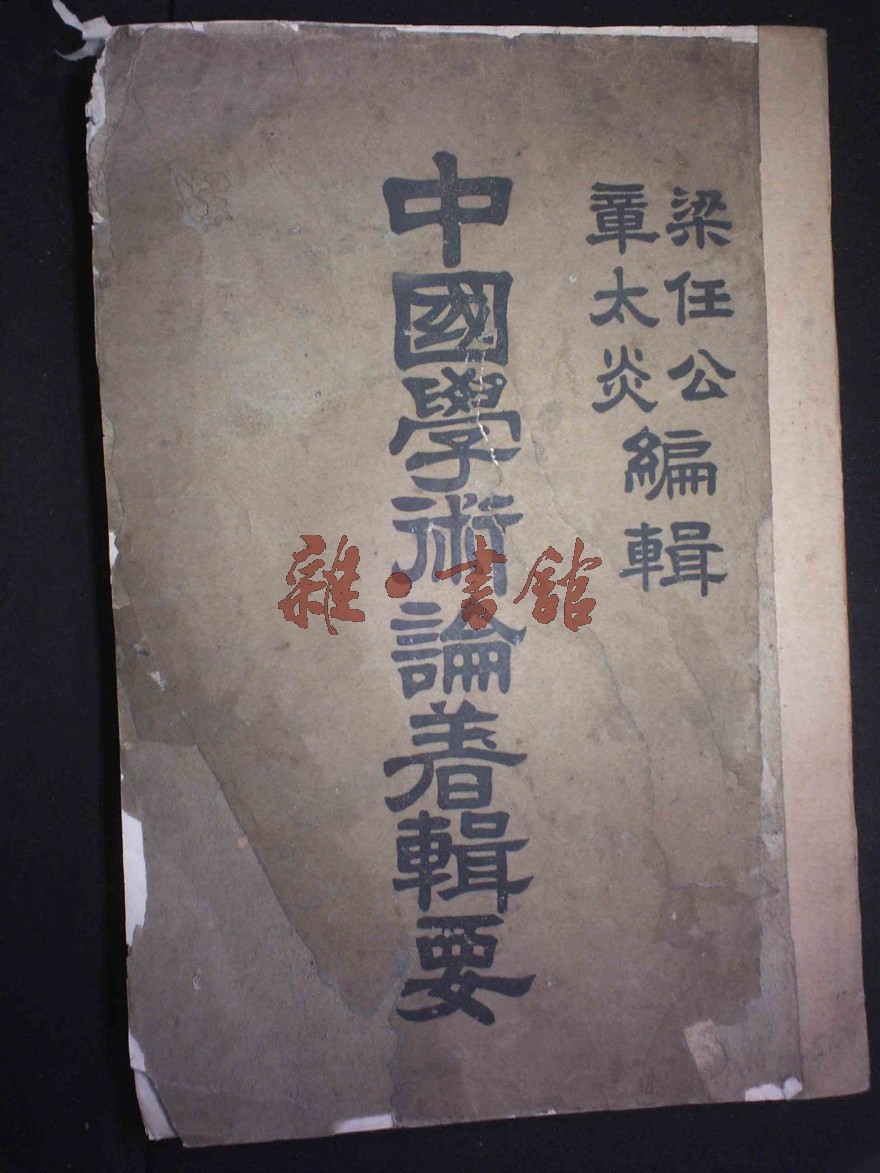 梁任公
章太炎
編輯
中國學術論著輯要
雜·書館